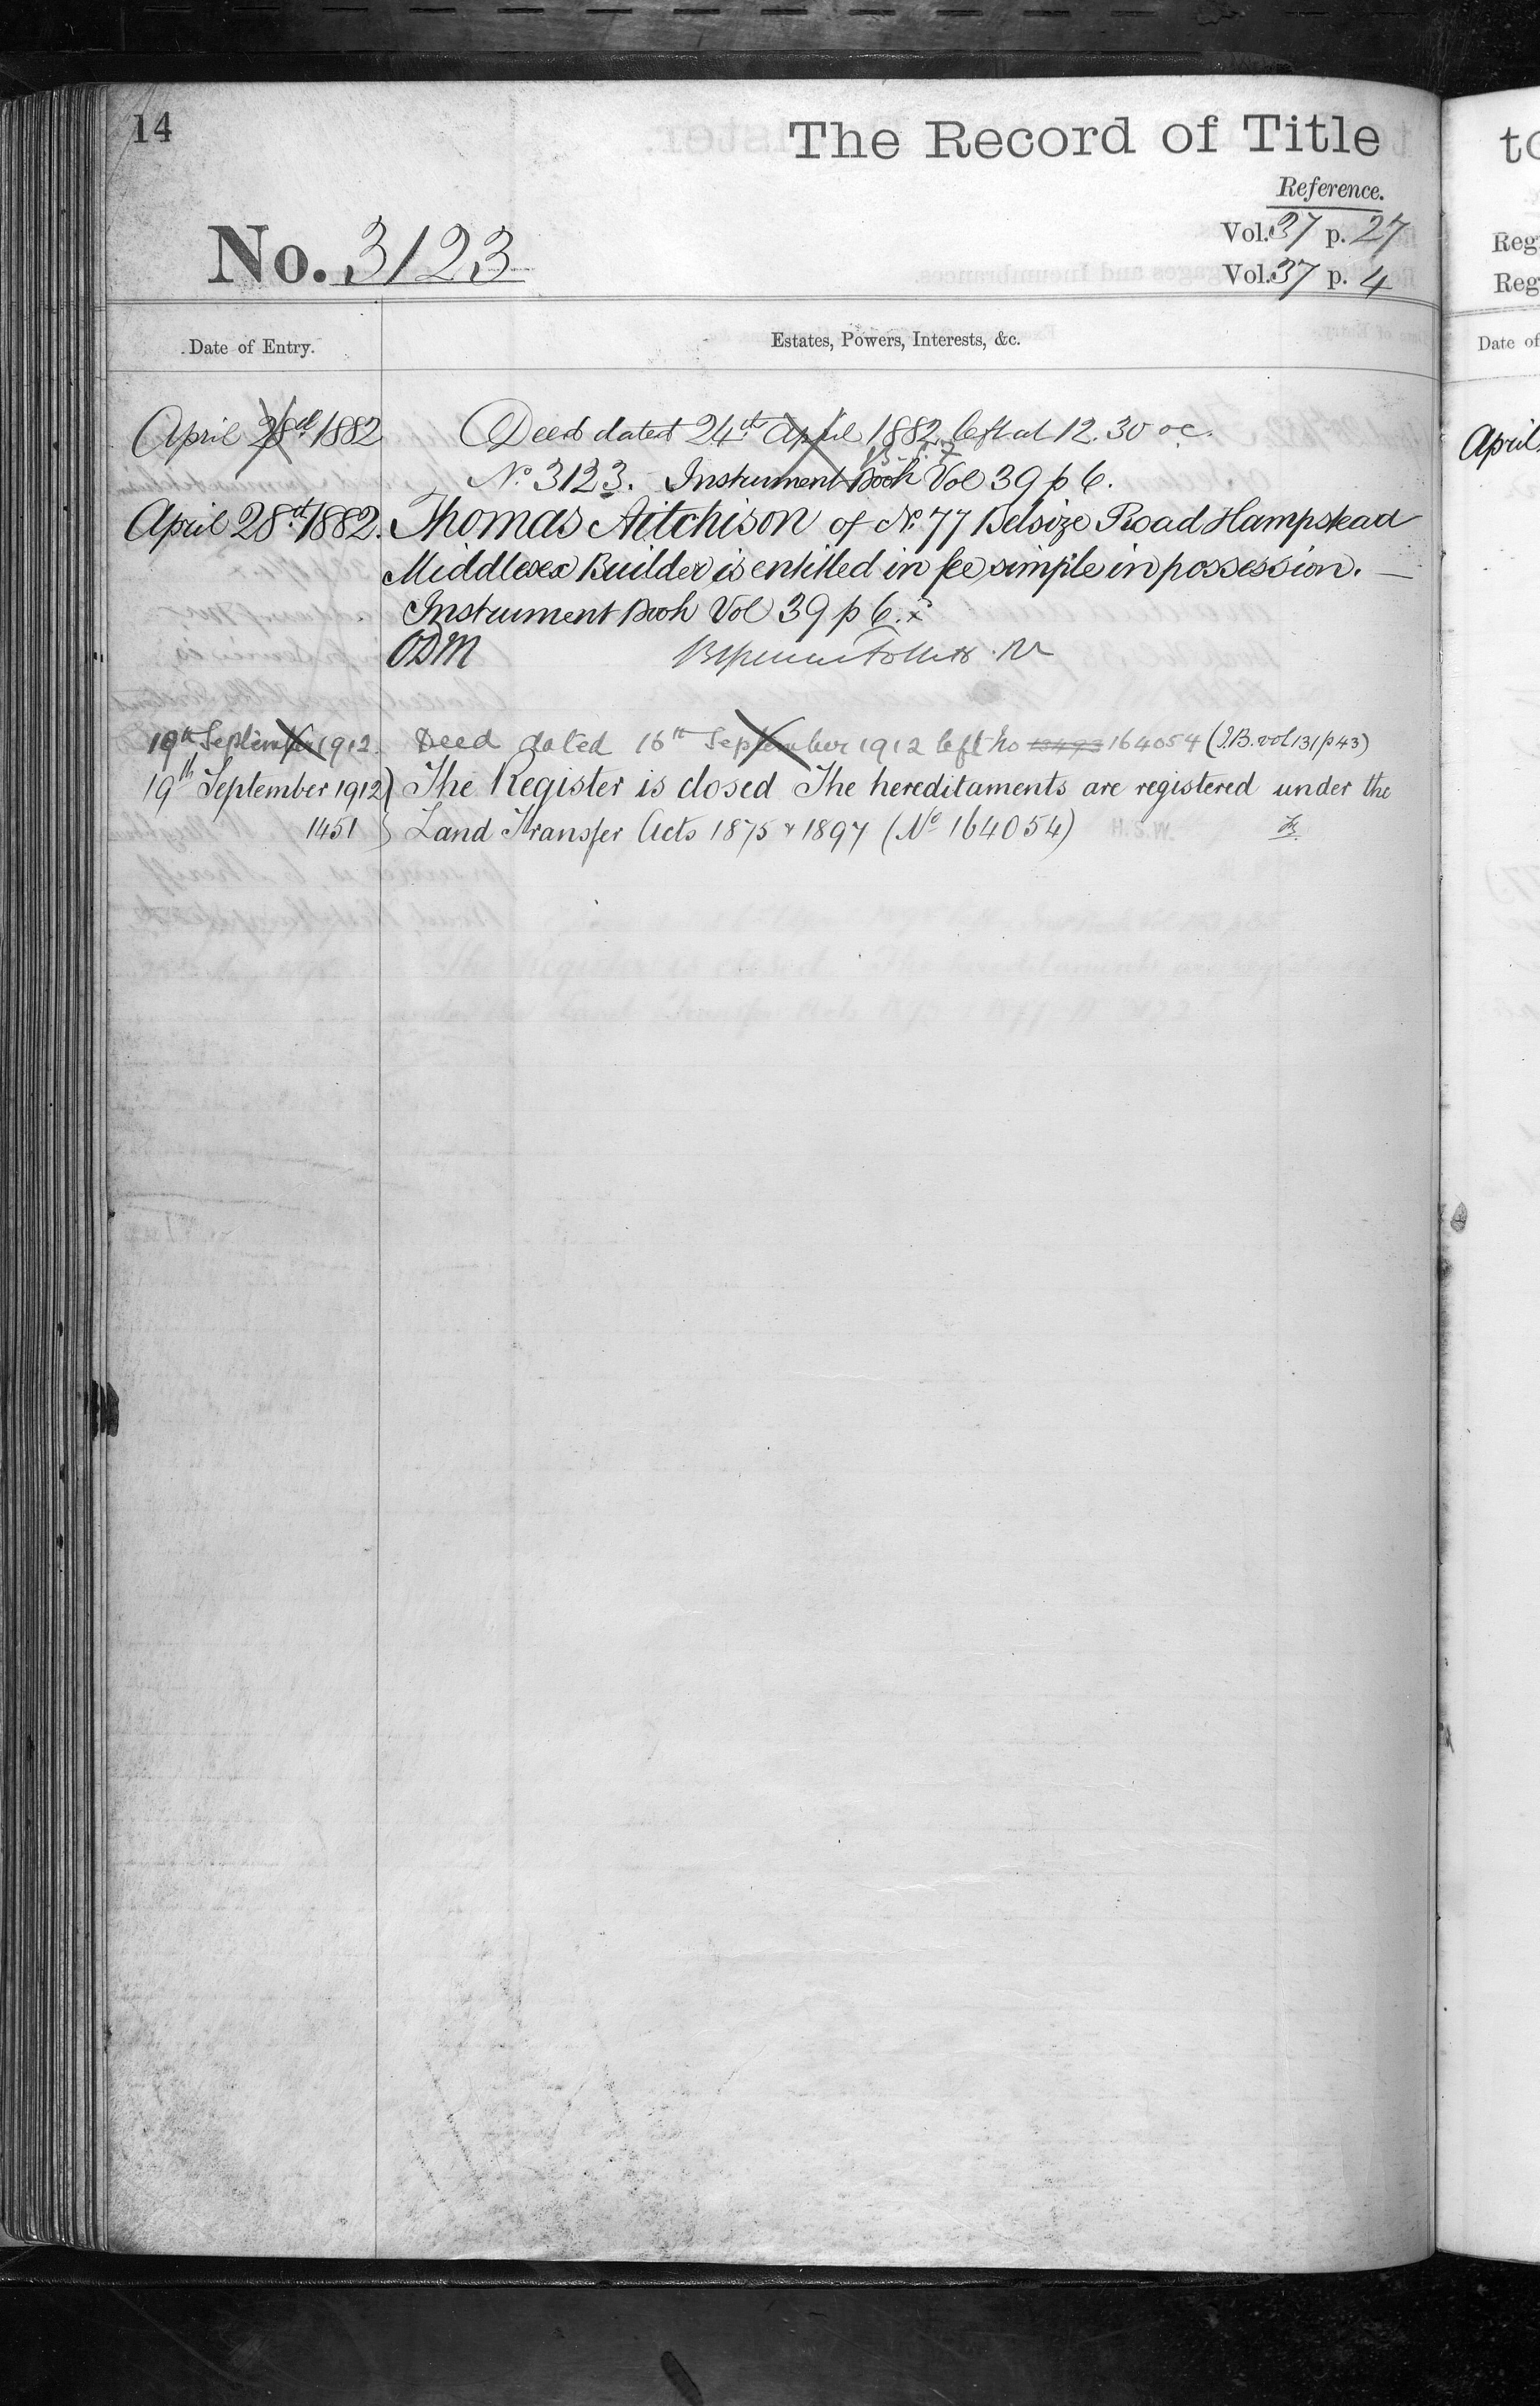 14
The Record of Title
Reference.
No. 3123
Vol. 37 p. 27
Vol. 37 p. 4
Date of Entry.
Estates, Powers, Interests, &c.
April 28th 1882
Deed dated 24th April 1882 left at 12.30 oc.
No 3123. Instrument Book Vol 39 p 6.
April 28th 1882.
Thomas Aitchison of No. 77 Belsize Road Hampstead
Middlesex Builder is entitled in fee simple in possession. —
Instrument Book Vol 39 p 6.
ODM
19th September 1912.
Deed dated 16th September 1912 left no 164054 (I.B. vol 131 p 43)
19th September 1912)
The Register is closed The hereditaments are registered under the
1451
Land Transfer Acts 1875 & 1897 (No 164054)
H.S.W.
to
Reg
Reg
Date of
April